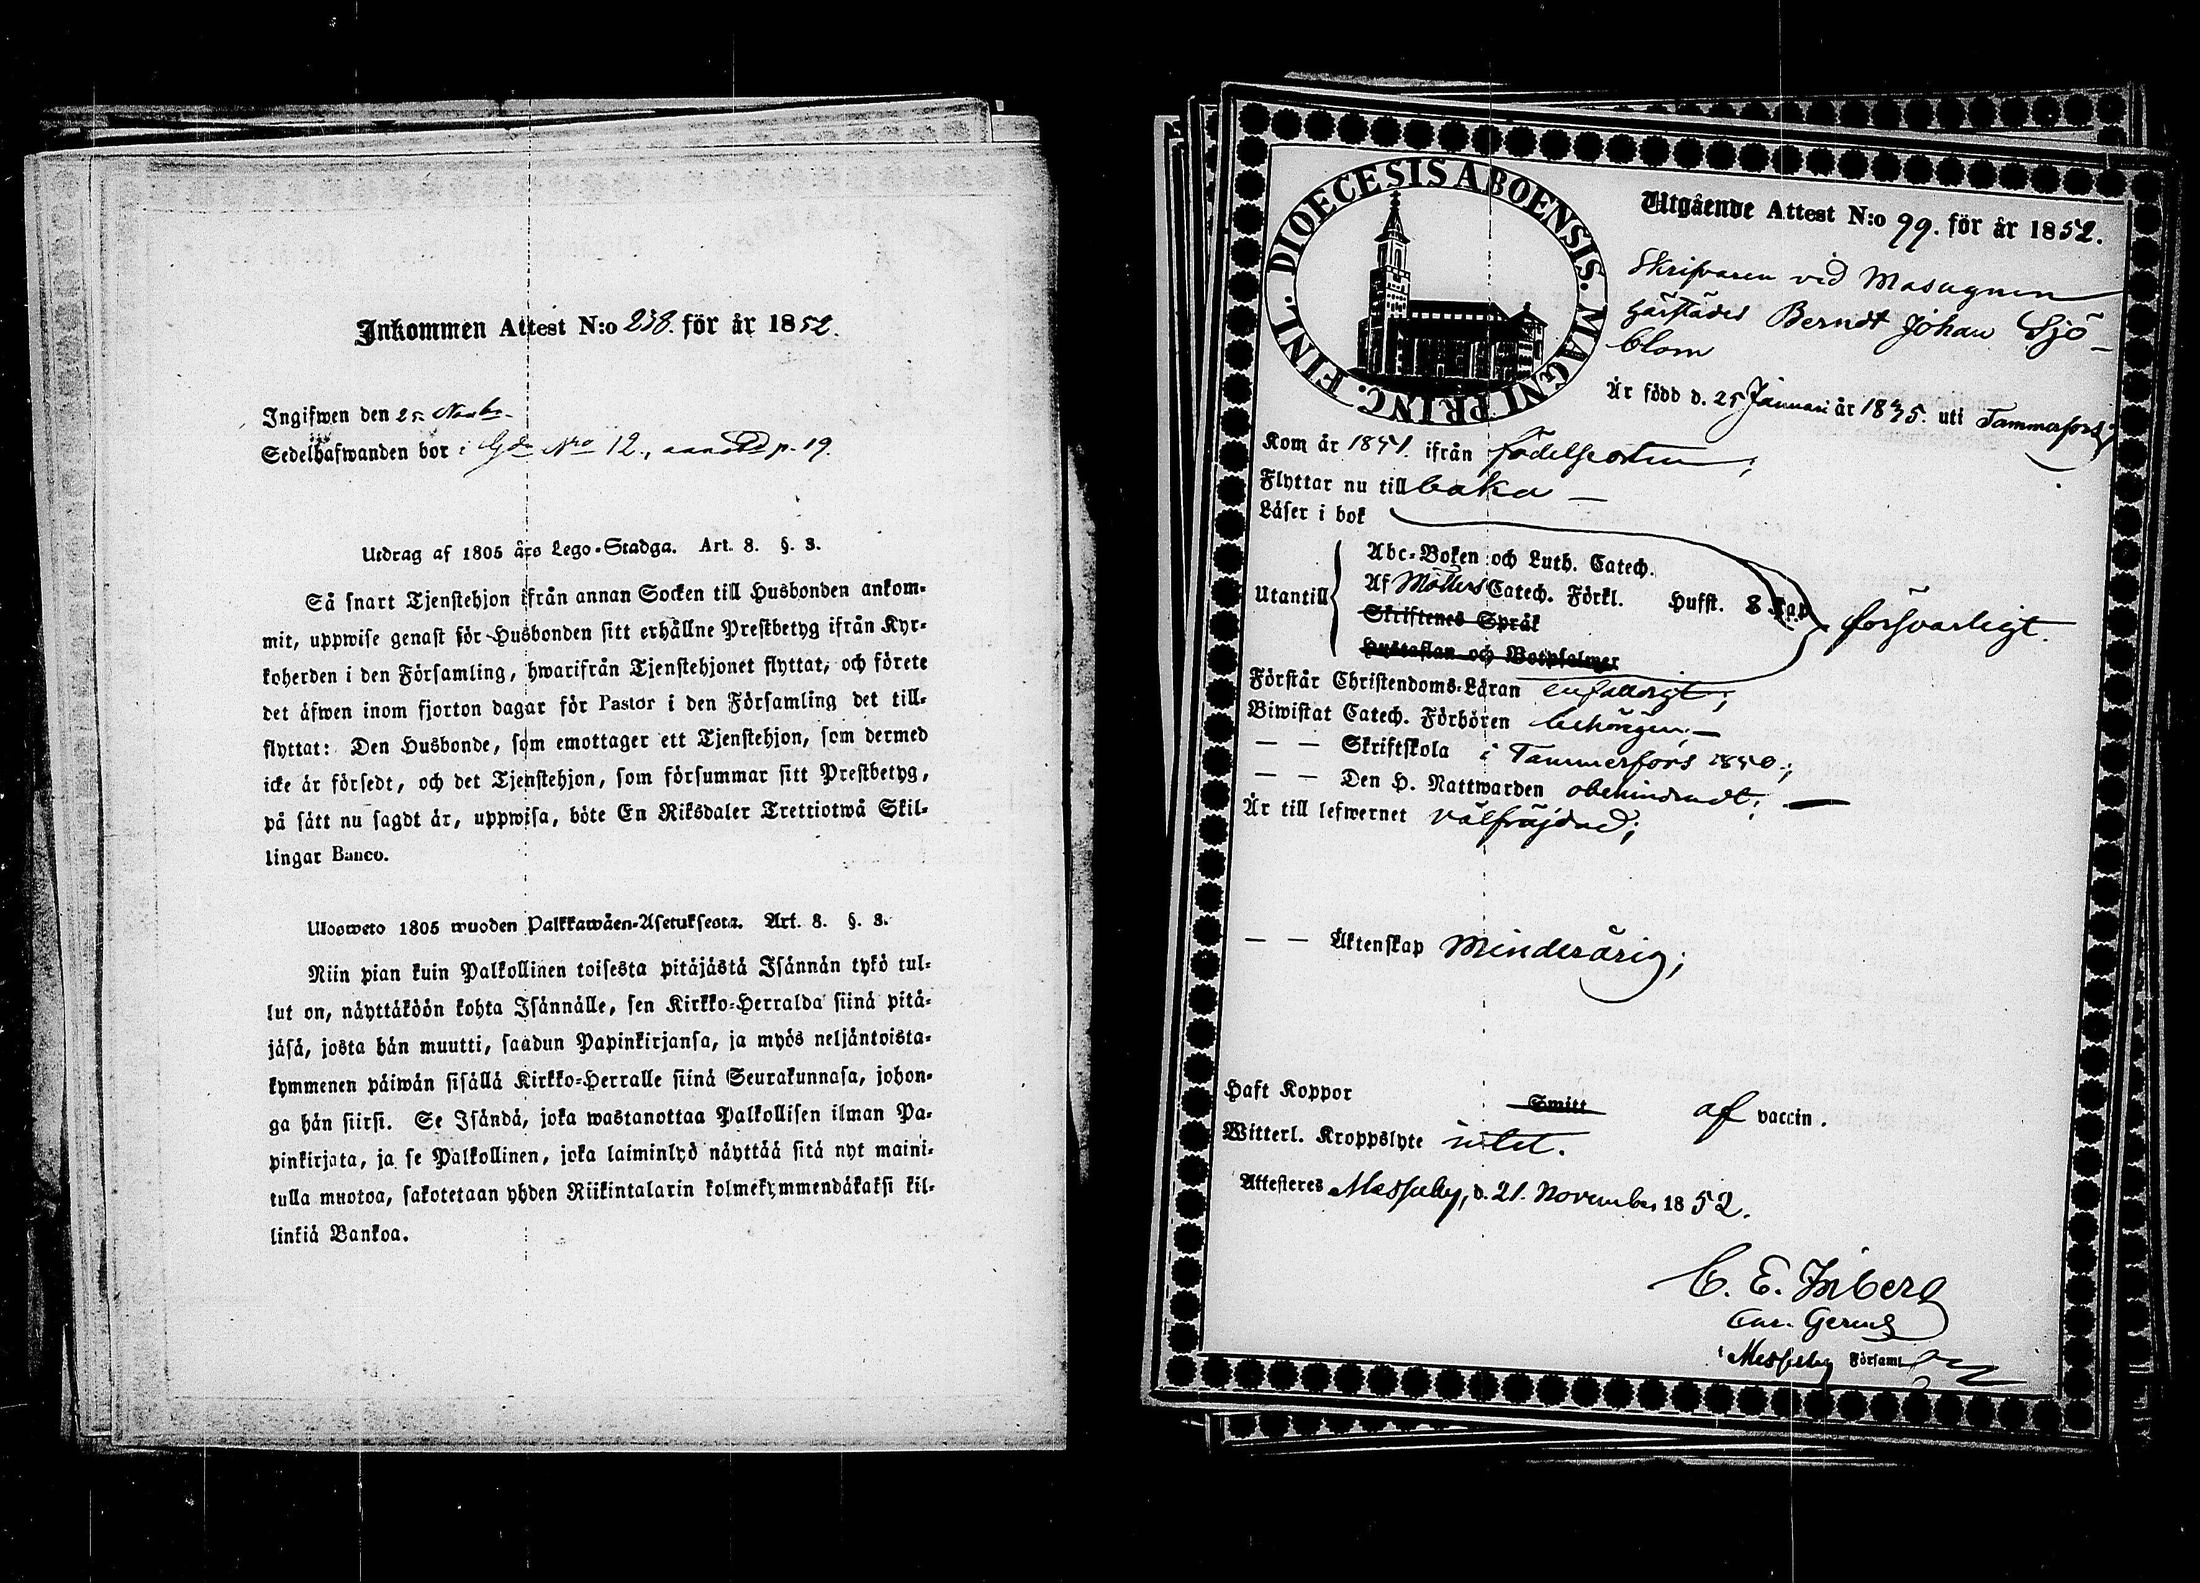 Inkommen Attest N:o 238. för år 1852.
Ingifwen den 25. Novbr.
Sedelhafwanden bor i Gdn Nro 12., p. 19.
Utdrag af 1805 års Lego-Stadga. Art. 8. §. 3.
Så snart Tjenstehjon ifrån annan Socken till Husbonden ankom-
mit, uppwise genast för Husbonden sitt erhållne Prestbetyg ifrån Kyr-
koherden i den Församling, hwarifrån Tjenstehjonet flyttat, och förete
det äfwen inom fjorton dagar för Pastor i den Församling det till-
flyttat: Den Husbonde, som emottager ett Tjenstehjon, som dermed
icke är försedt, och det Tjenstehjon, som försummar sitt Prestbetyg,
på sätt nu sagdt är, uppwisa, böte En Riksdaler Trettiotwå Skil-
lingar Banco.
Ulosweto 1805 wuoden Palkkawäen-Asetuksesta. Art. 8. §. 3.
Niin pian kuin Palkollinen toisesta pitäjästä Isännän tykö tul-
lut on, näyttäköön kohta Isännälle, sen Kirkko-Herralda siinä pitä-
jäsä, josta hän muutti, saadun Papinkirjansa, ja myös neljäntoista-
kymmenen päiwän sisällä Kirkko-Herralle siinä Seurakunnasa, johon-
ga hän siirsi. Se Isändä, joka wastanottaa Palkollisen ilman Pa-
pinkirjata, ja se Palkollinen, joka laiminlyö näyttää sitä nyt maini-
tulla muotoa, sakotetaan yhden Riikintalarin kolmekymmendäkaksi kil-
linkiä Bankoa.
FINL. DIOECESIS ABOENSIS. MAGNI PRINC.
Utgående Attest N:o 99. för år 1852.
Skrifvaren vid Masugnen
härstädes Berndt Johan Sjö-
blom
Är född d. 25 Januari år 1835. uti Tammerfors;
Kom år 1851. ifrån födelseorten;
Flyttar nu till baka —
Läser i bok
Utantill
Abc-Boken och Luth. Catech.
Af Möllers Catech. Förkl. Hufst. 8 Kap.
Skriftenes Språk
Hustaflan och Botpsalmer
försvarligt.
Förstår Christendoms-Läran enfaldigt;
Biwistat Catech. Förhören behörigen; —
— — Skriftskola i Tammerfors 1850;
— — Den H. Nattwarden obehindradt; —
Är till lefwernet välfräjdad;
— — Äktenskap Minderårig;
Haft Koppor Smitt af vaccin.
Witterl. Kroppslyte intet.
Attesteras Messuby, d. 21. November 1852.
C. E. Inberg
i Messuby Församl